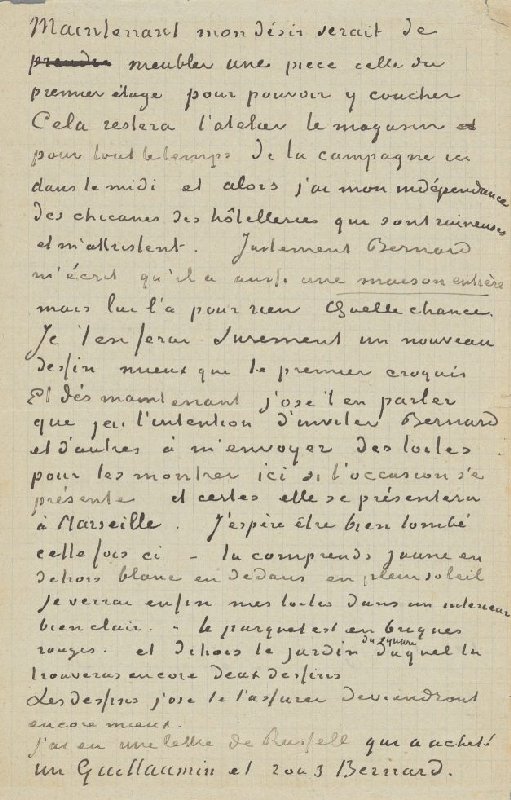 Maintenant mon désir serait de
prendre meubler une piece celle du
premier étage pour pouvoir y coucher
Cela restera l'atelier le magasin et
pour tout le temps de la campagne ici
dans le midi et alors j'ai mon indépendance
des chicanes des hôtelleries qui sont ruineuses
et m'attristent. Justement Bernard
m'écrit qu'il a aussi une maison entière
mais lui l'a pour rien Quelle chance.
Je t'en ferai surement un nouveau
dessin mieux que le premier croquis
Et dès maintenant j'ose t'en parler
que j'ai l'intention d'inviter Bernard
et d'autres à m'envoyer des toiles
pour les montrer ici si l'occasion s'e
présente et certes elle se présentera
à Marseille. J'espère être bien tombé
cette fois ci – tu comprends jaune en
dehors blanc en dedans en plein soleil
je verrai enfin mes toiles dans un interieur
bien clair. – le parquet est en briques
rouges. et dehors le jardin du square duquel tu
trouveras encore deux dessins
Les dessins j'ose te l'assurer deviendront
encore mieux.
j'ai eu une lettre de Russell qui a acheté
un Guillaumin et 2 ou 3 Bernard.